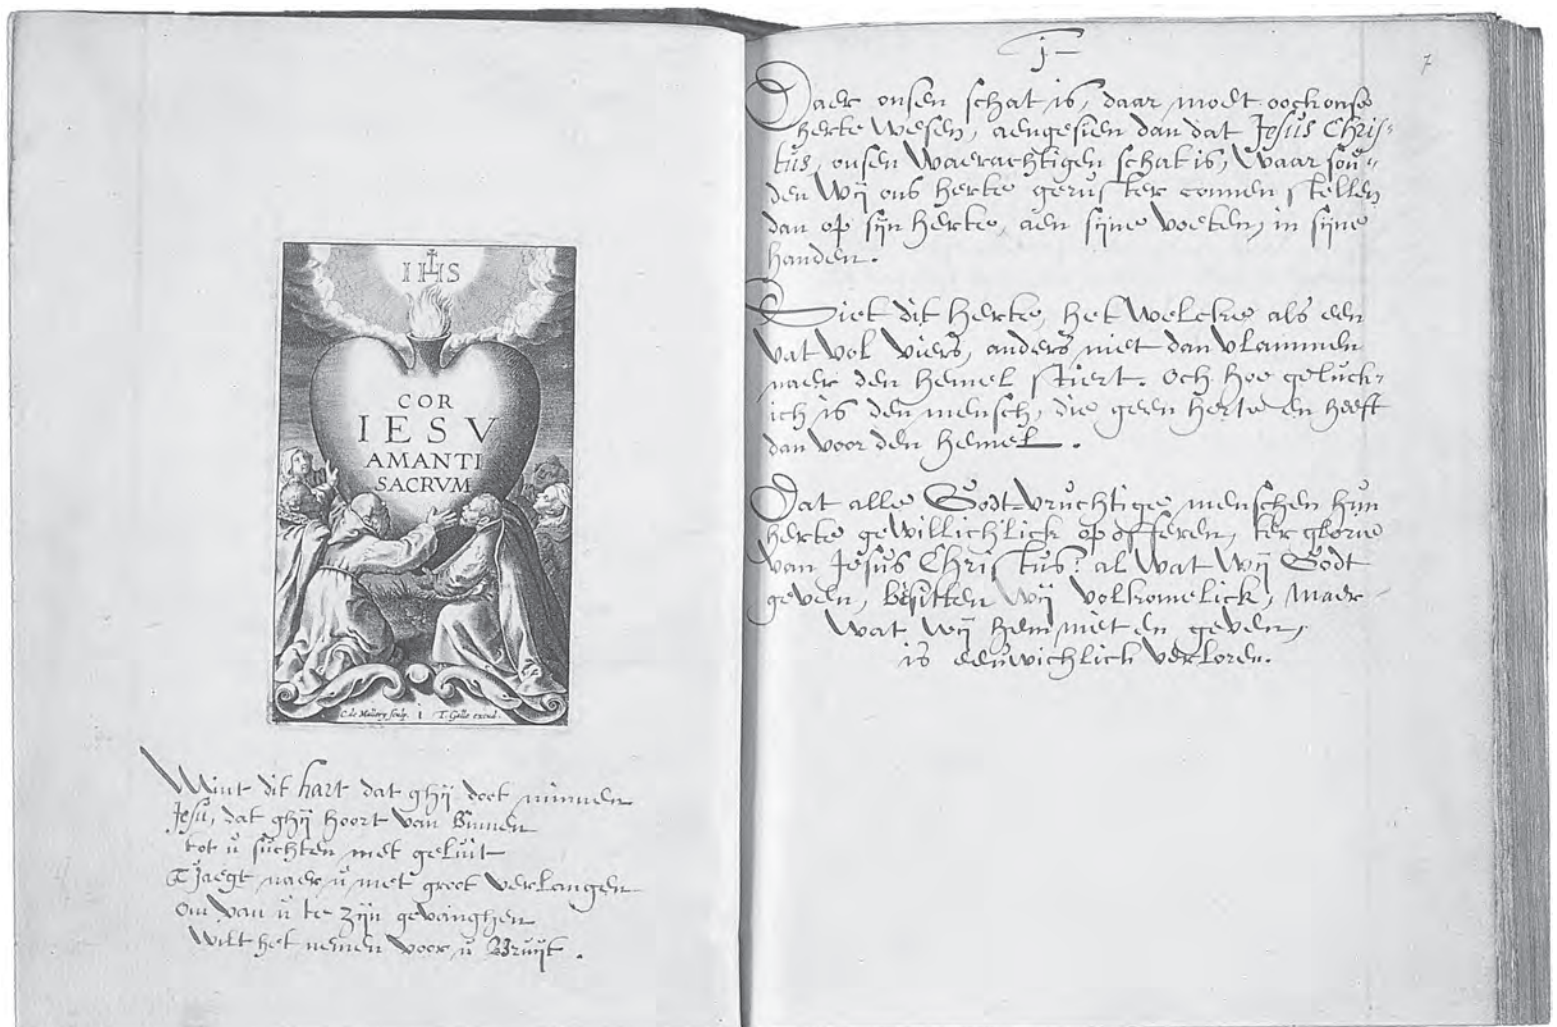 IHS
COR
IESV
AMANTI
SACRVM
C. de Mallery sculp. 1 T. Galle excud.
Mint dit hart dat ghij doet minnen
Jesu, dat ghij hoort van Binnen
tot u suchten met geluit
T'Jaegt naer u met groot verlangen
Om van u te zijn gevanghen
wilt het nemen voor u Bruijt.
j
7
Daer onsen schat is, daar moet oock onse
herte wesen, aengesien dan dat Jesus Chris-
tus, onsen waerachtigen schat is, waar sou-
den wij ons herte geruster connen stellen
dan op sijn herte, aen sijne voeten, in sijne
handen.
Siet dit herte, het welcke als een
vat vol viers, anders niet dan vlammen
naer den hemel stiert. Och hoe geluck-
ich is den mensch, die geen herte en heeft
dan voor den hemel.
Dat alle Godt-vruchtige menschen hun
herte gewillichlick op offeren, ter glorie
van Jesus Christus: al wat wij Godt
geven, besitten wij volkomelick, maer
wat wij hem niet en geven,
is eeuwichlich verloren.